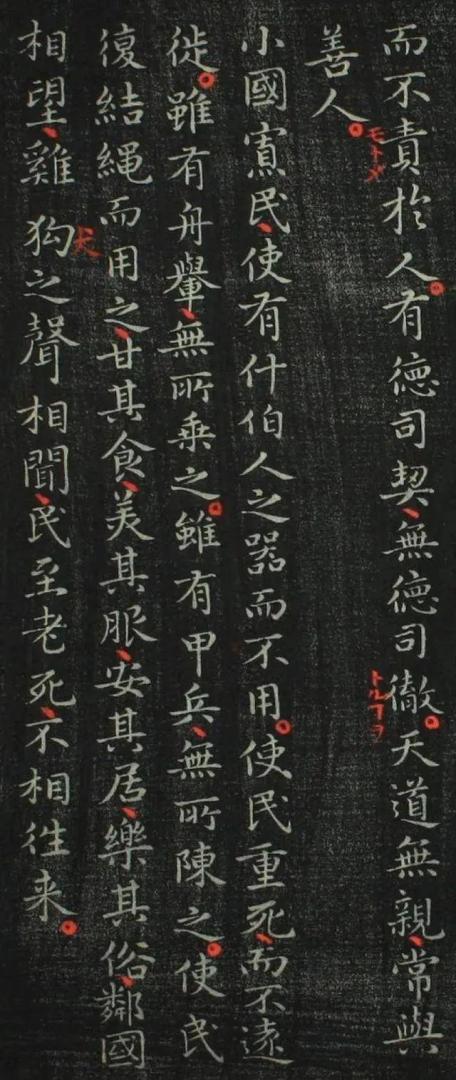 而不責扵人。有徳司契、無徳司徹。天道無親、常與
モトメ
トルヿヲ
善人。
小國寡民、使有什伯人之器而不用。使民重死、而不遠
徙。雖有舟轝、無所乗之。雖有甲兵、無所陳之。使民
復結繩而用之、甘其食、美其服、安其居、樂其俗、鄰國
相望、雞狗之聲相聞、民至老死、不相往来。
犬